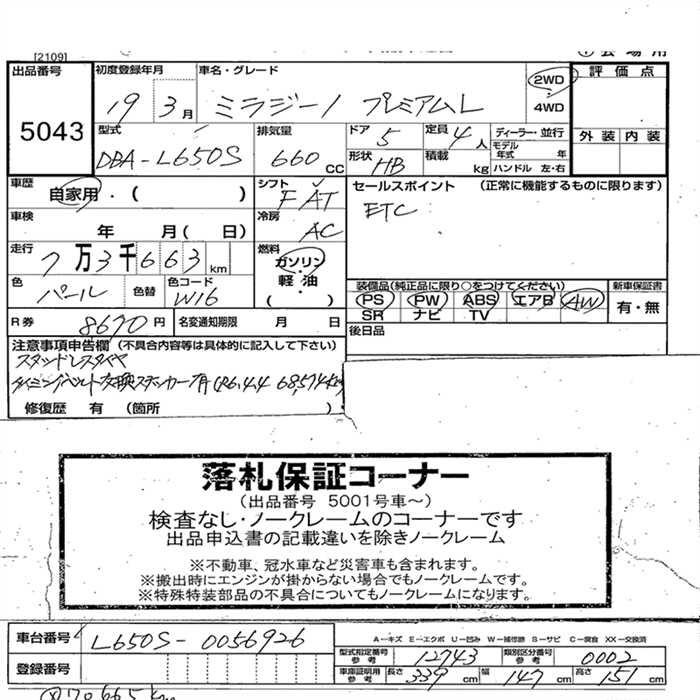 [2109]
出品番号 初度登録年月 車名・グレード 2WD 評価点
5043 19 3月 ミラジーノ プレミアムL 4WD
型式 排気量 ドア 定員 ディーラー・並行 外装 内装
DBA-L650S 660 CC 5 4人 モデル年式 年
形状 HB 積載 kg ハンドル 左・右
車歴 自家用・( ) シフト F AT セールスポイント (正常に機能するものに限ります)
車検 年 月( 日) 冷房 AC ETC
走行 7万3千663km 燃料 ガソリン・軽油 ( )
色 パール 色替 色コード W16 装備品(純正品に限り○をつけてください) 新車保証書
PS PW ABS エアB AW 有・無
SR ナビ TV
R券 8670円 名変通知期限 月 日 後日品
注意事項申告欄 (不具合内容等は具体的に記入して下さい)
スタッドレスタイヤ
タイミングベルト交換ステッカー有 (R6.4.4
修復歴 有 (箇所 )
落札保証コーナー
(出品番号 5001号車~)
検査なし・ノークレームのコーナーです
出品申込書の記載違いを除きノークレーム
※不動車、冠水車など災害車も含まれます。
※搬出時にエンジンが掛からない場合でもノークレームです。
※特殊特装部品の不具合についてもノークレームになります。
A-キズ E-エクボ U-凹み W-補修跡 S-サビ C-腐食 XX-交換済
車台番号 L650S-0056926 型式指定番号 参考 12743 類別区分番号 参考 0002
登録番号 車庫証明用 参考 長さ 339cm 幅 147cm 高さ 151cm